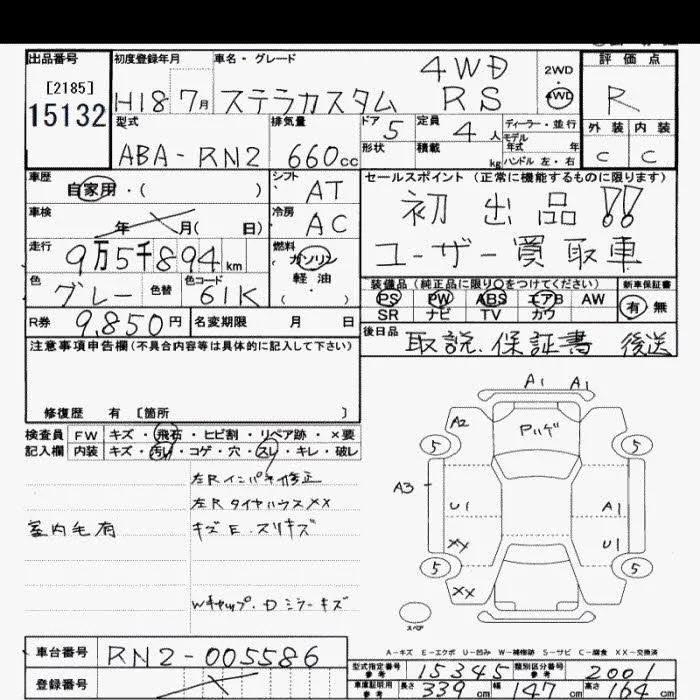 出品番号
[2185]
15132
初度登録年月
H18 7月
車名・グレード
ステラカスタム
4WD
RS
2WD
4WD
評価点
R
外装 内装
C C
型式
ABA-RN2
排気量
660cc
ドア
5
形状
定員
4人
積載
kg
ディーラー・並行
モデル
年式 年
ハンドル 左・右
車歴
自家用・( )
シフト
AT
車検
年 月( 日)
冷房
AC
走行
9万5千894km
燃料
ガソリン
軽油
( ・ )
色
グレー
色替
色コード
61K
R券
9,850円
名変期限 月 日
セールスポイント (正常に機能するものに限ります)
初出品!!
ユーザー買取車
装備品(純正品に限り○をつけてください)
新車保証書
PS PW ABS エアB AW
SR ナビ TV カワ
有 無
後日品
取説.保証書 後送
注意事項申告欄(不具合内容等は具体的に記入して下さい)
修復歴 有 [箇所 ]
検査員
記入欄
FW キズ・飛石・ヒビ割・リペア跡・×要
内装 キズ・汚レ・コゲ・穴・スレ・キレ・破レ
左Rインパネ修正
左RタイヤハウスXX
室内毛有
キズE.スリキズ
Wキャップ.Dミラーキズ
A1 A1
A2
Pハゲ
5 5
A3
U1 A1
XX U1
5 5
XX
スペア
A-キズ E-エクボ U-凹み W-補修跡 S-サビ C-腐食 XX-交換済
車台番号
RN2-005586
登録番号
型式指定番号
参考
15345
類別区分番号
参考
2001
車庫証明用
参考
長さ 339cm 幅 147cm 高さ 164cm